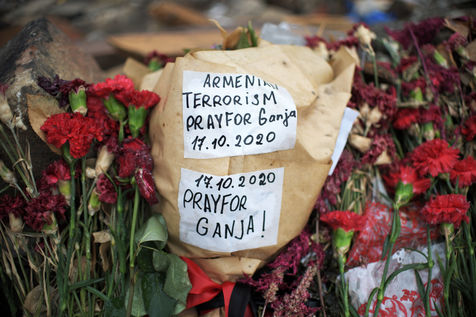 ARMENIAN
TERRORISM
PRAY FOR Ganja
17.10.2020
17.10.2020
PRAY FOR
GANJA!